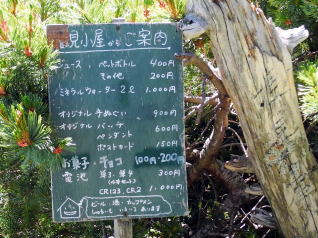 見小屋からご案内
ジュース ペットボトル 400円
その他 200円
ミネラルウォーター2ℓ 1.000円
オリジナル手ぬぐい 900円
オリジナル バッチ 600円
ペンダント
ポストカード 150円
お菓子・チョコ 100円~200円
電池 単3.単4 300円
CR123,CR2 1.000円
ビール 酒 カップメン